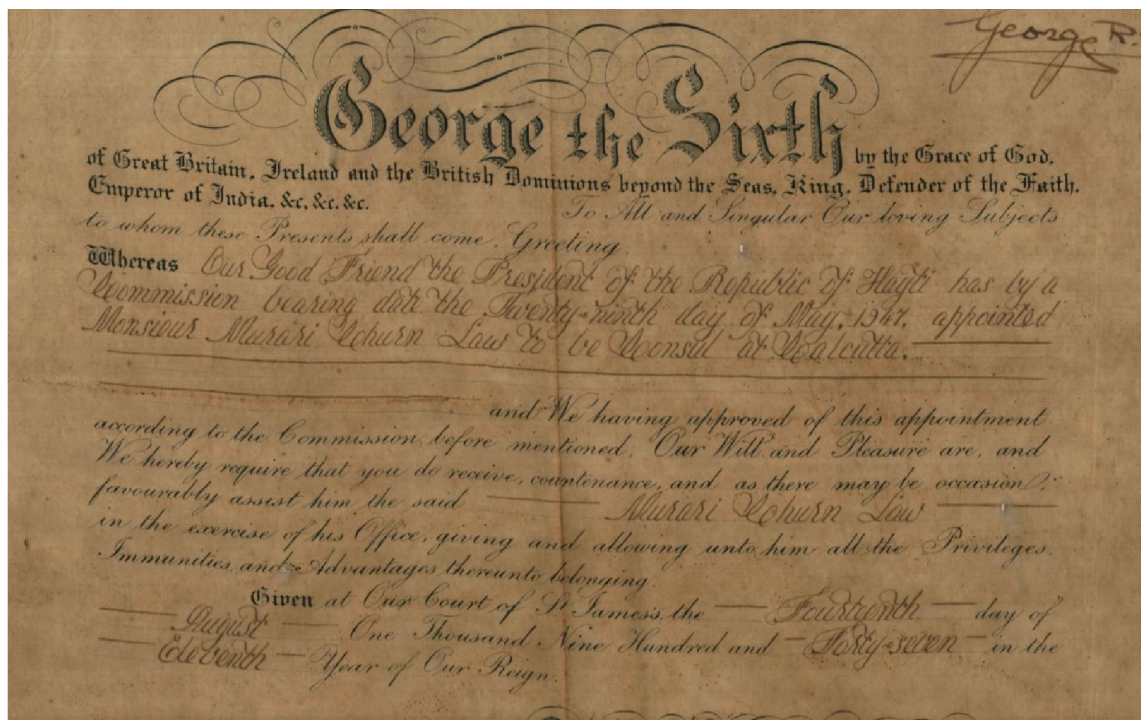 George R.
George the Sixth
by the Grace of God,
of Great Britain, Ireland and the British Dominions beyond the Seas, King, Defender of the Faith,
Emperor of India, &c, &c, &c.
To All and Singular Our loving Subjects
to whom these Presents shall come, Greeting
Whereas Our Good Friend the President of the Republic of Hayti has by a
Commission bearing date the Twenty-ninth day of May, 1947, appointed
Monsieur Murari Churn Law to be Consul at Calcutta.
and We having approved of this appointment
according to the Commission before mentioned, Our Will and Pleasure are, and
We hereby require that you do receive, countenance, and as there may be occasion,
favourably assist him the said Murari Churn Law
in the exercise of his Office, giving and allowing unto him all the Privileges,
Immunities, and Advantages thereunto belonging.
Given at Our Court of St James's, the Fourteenth day of
August One Thousand Nine Hundred and Forty-seven in the
Eleventh Year of Our Reign.